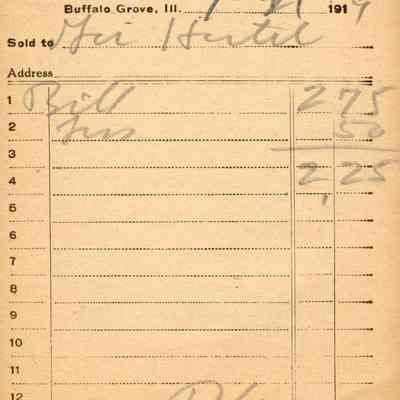 Buffalo Grove, Ill. 1919
Sold to Hertel
Address
1 Bill 2 75
2 Less 50
3
4 2 25
5
6
7
8
9
10
11
12